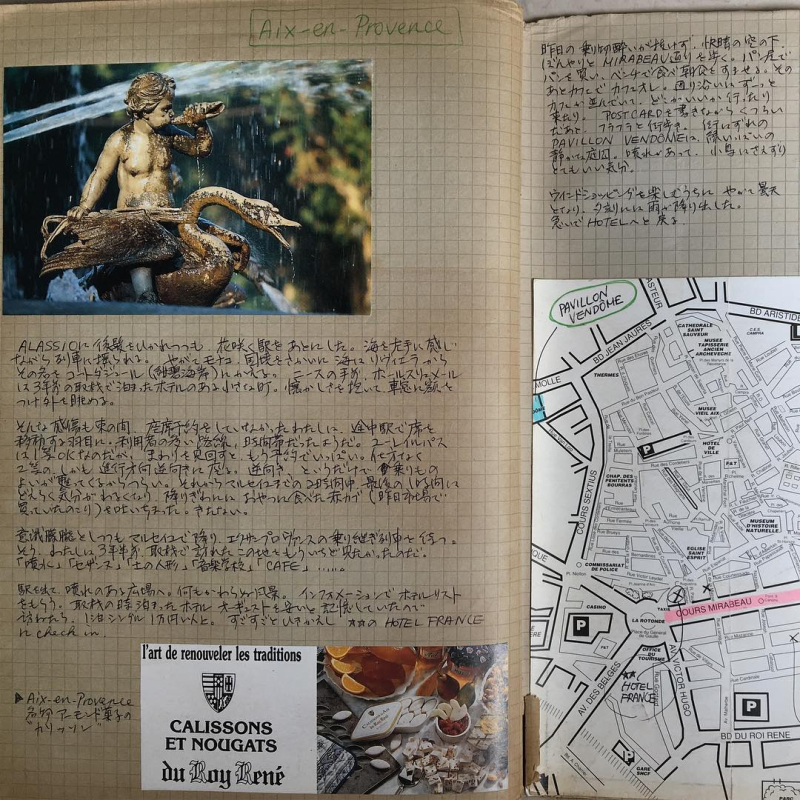 Aix-en-Provence
ALASSIOに後髪をひかれつつも、花咲く駅をあとにした。海を左手に感じ
ながら列車に揺られる。やがてモナコ、国境をさかいに海はリヴィエラから
その名をコートダジュール(紺碧海岸)にかえる。ニースの手前、ホールスリュメール
は3年前の取材で泊まったホテルのある小さな町。懐かしさを抱いて、車窓に額を
つけ外を眺める。
そんな感傷も束の間、座席予約をしていなかったわたしは、途中駅で席を
移動する羽目に。利用者の多い路線、時間帯だったようだ。ユーレイルパス
は1等OKなのだが、まわりを見回すと、もう予約でいっぱい。仕方なく
2等の、しかも進行方向逆向きに座る。逆向き、というだけで乗りもの
よいが襲ってくるからつらい。それからマルセイユまでの2時間中、最後の1時間は
どえらく気分がわるくなり、降りぎわには おやつに食べた赤カブ(昨日市場で
買っていたのこり)を吐いちゃった。きたない。
意識朦朧としつつもマルセイユで降り、エクサンプロヴァンスの乗り継ぎ列車を待つ。
そう、わたしは3年半前、取材で訪れたこの地をもういちど見たかったのだ。
「噴水」「セザンヌ」「土の人形」「音楽学校」「CAFE」……
駅を出て、噴水のある広場へ。何もかわらない風景。インフォメーションでホテルリスト
をもらう。取材の時泊まったホテル
を安いと記憶していたので
訪ねたら、1泊シングル1万円以上。すごすごとひきかえし
HOTEL FRANCE
に check in.
▶Aix-en-Provence
名物アーモンド菓子の
"カリッソン"
l'art de renouveler les traditions
CALISSONS
ET NOUGATS
du Roy René
昨日の乗り物酔いが抜けず、快晴の空の下、
ぼんやりとMIRABEAU通りを歩く。パン屋で
パンを買い、ベンチで食べ朝食をすませる。その
あとカフェでカフェオレ。通り沿いはずーっと
カフェが並んでいて、どこがいいか行ったり
来たり。POSTCARDを書きながらくつろい
だあと、フラフラと街歩き。街はずれの
PAVILLON VENDÔMEは、陽いっぱいの
静かな庭園。噴水があって、小鳥はさえずり
とてもいい気分。
ウインドショッピングを楽しむうちに、やがて曇天
となり、夕刻には雨が降り出した。
急いでHOTELへと戻る。
PAVILLON
VENDÔME
PASTEUR
BD ARISTIDE
BD JEAN JAURES
CATHEDRALE
SAINT
SAUVEUR
C.E.S.
CAMPRA
MUSEE
TAPISSERIE
ANCIEN
ARCHEVECHE
THERMES
MOLLE
MUSEE
VIEIL AIX
HOTEL
DE
VILLE
P&T
P
COURS SEXTIUS
CHAP. DES
PENITENTS
BOURRAS
MUSEUM
D'HISTOIRE
NATURELLE
EGLISE
SAINT
ESPRIT
COMMISSARIAT
DE POLICE
CASINO
P
LA ROTONDE
Place du Général
de Gaulle
TAXIS
COURS MIRABEAU
OFFICE
DU
TOURISME
HOTEL
FRANCE
AV. DES BELGES
AV. VICTOR HUGO
P
BD DU ROI RENE
P
GARE
SNCF